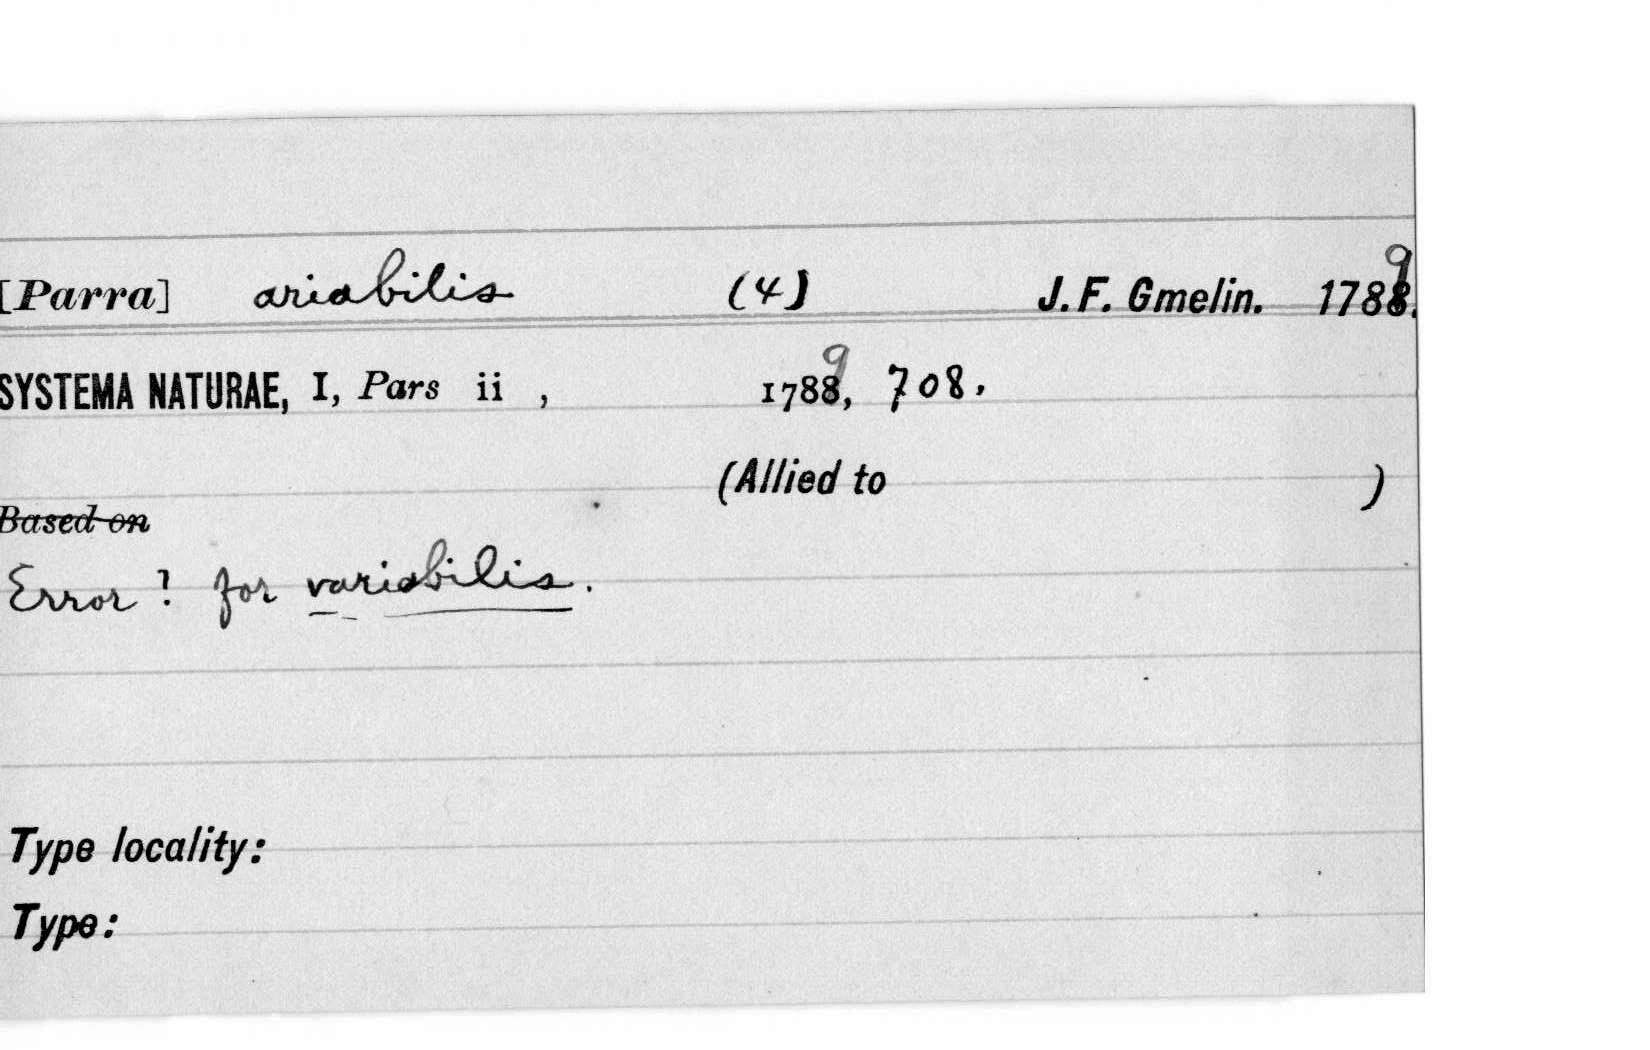 [Parra] ariabilis (4) J. F. Gmelin. 1789.
SYSTEMA NATURAE, I, Pars ii , 1789, 708.
(Allied to )
Based on
Error? for variabilis.
Type locality:
Type: